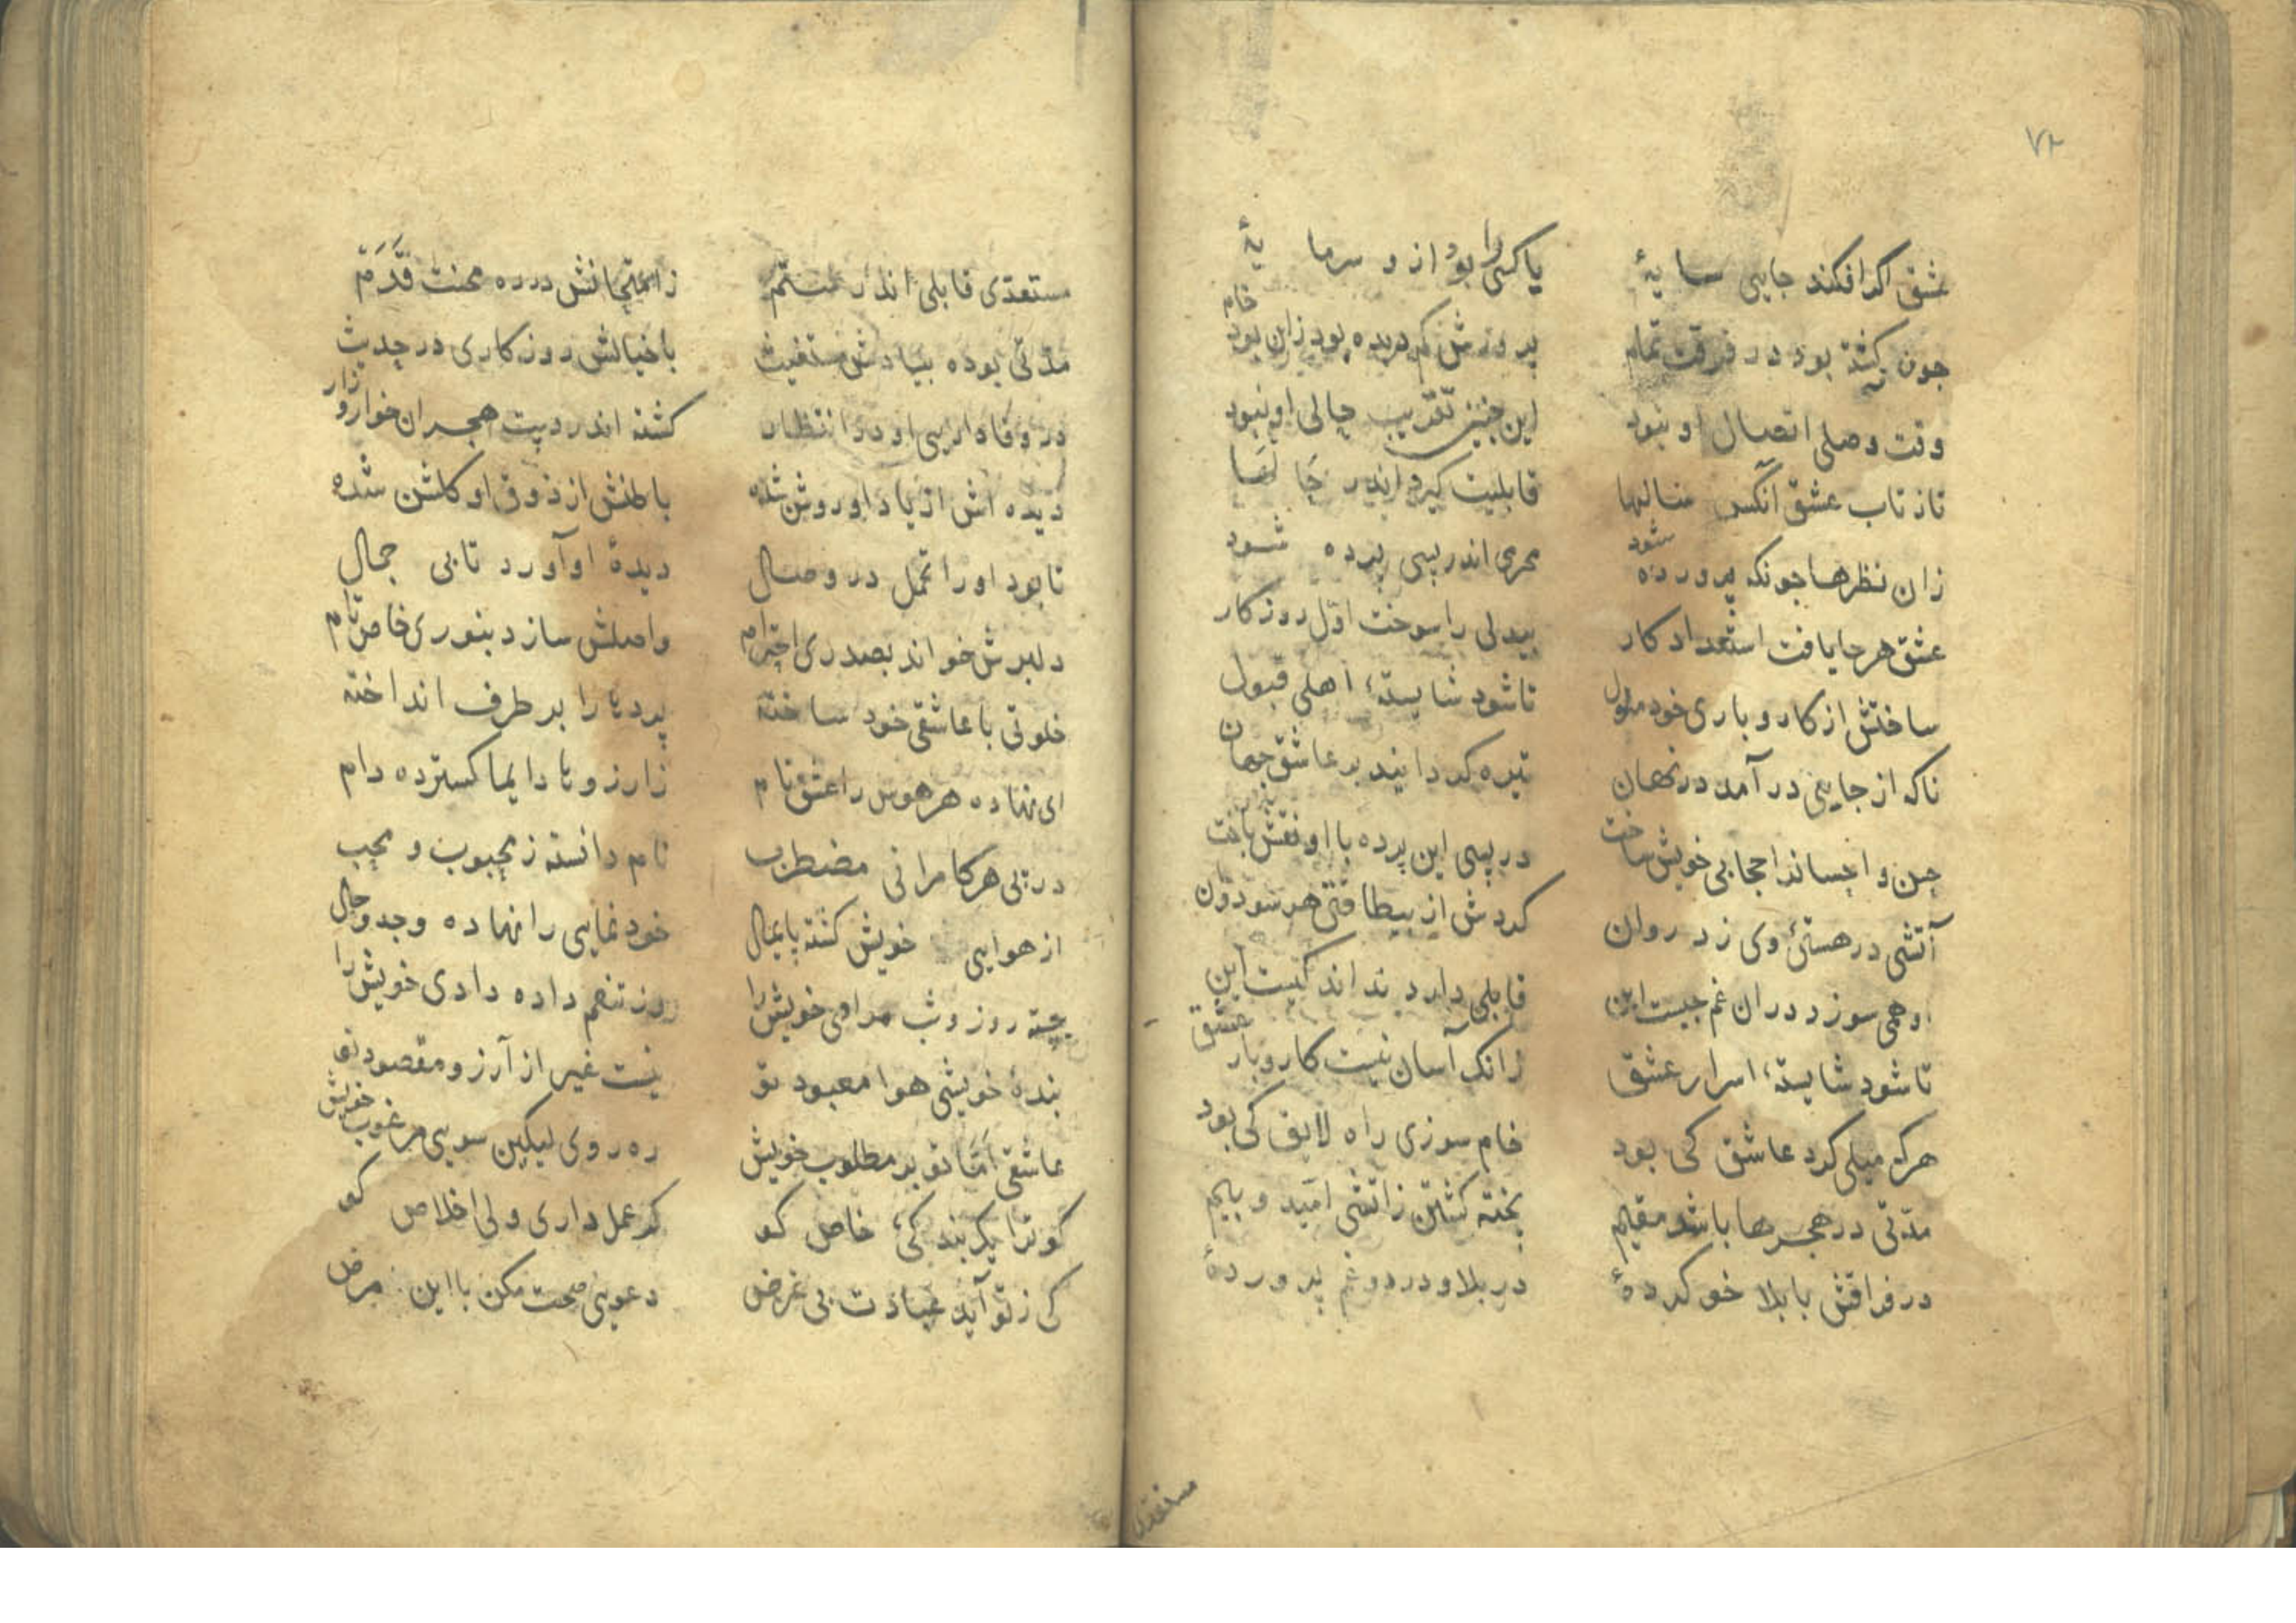 ۷۲
عشق اگر افکند جایی سایهٔ یا کسی را بود از و سرمایهٔ
جون کشته بود در فرقت تمام پرورش کم دیده بود زان بود خام
وقت وصلی اتصال او نبود این جنین تقریب حالی او نبود
تاز تاب عشق آنکس سالها قابلیت کیرد اندر
زان نظرها جونکه پرورده شود محرمی اندر پسی پرده شود
عشق هر جا یافت استعداد کار بیدلی را سوخت اوّل روزکار
ساختش از کار و باری خود ملول تا شود شایستهٔ اهلی قبول
ناکه از جایی در آمد در نهان تیره کردانید بر عاشق جهان
حجابی خویش ساخت در پسی این پرده با او نقش باخت
آتشی در هستیٔ وی زد روان کردش از بیطاقتی هر سو دوان
او همی سوزد در ان غم جیست این قابلی دارد نداند کیست این
تا شود شایستهٔ اسرار عشق زانک آسان نیست کار و بار عشق
هرکه میلی کرد عاشق کی بود خام سوزی راه لایق کی بود
مدّتی در هجرها باشد مقیم پخته کشتن ز آتشی امّید و بیم
در فراقش با بلا خو کردهٔ در بلا و درد و غم پروردهٔ
مستعدّی
مستعدّی قابلی اندر ستم ز امتحانش در ره محنت قَدَم
مدّتی بوده بیادش مستغیث با خیالش روزکاری در حدیث
در وفاداریی او در انتظار کشته اندر دست هجران خوار و زار
دیده اش از یاد او روشن شده باطنش از ذوق او کلشن شده
تا بود او را تحمل در وصال دیدهٔ او آورد تابی جمال
دلبرش خواند بصدری احترام واصلش سازد بنوری خاص تام
خلوتی با عاشقی خود ساخته پرده را بر طرف انداخته
ای نهاده هر هوس را عشق نام زارزوها دایما کسترده دام
در پی هر کامرانی مضطرب نام دانسته ز محبوب و محب
از هوایی خویش کشته پایمال خود نمایی را نهاده وجد و حال
جسته روز و شب مرادی خویش را تنعم داده دادی خویش را
بندهٔ خویشی هوا معبود تو نیست غیر از آرزو مقصود تو
عاشقی امّا تو بر مطلوب خویش ره روی لیکین سویی مرغوب خویش
کو ترا یک بندکیٔ خاص کو کر عمل داری ولی اخلاص کو
کی ز تو آید عبادت بی غرض دعویی صحت مکن با این مرض